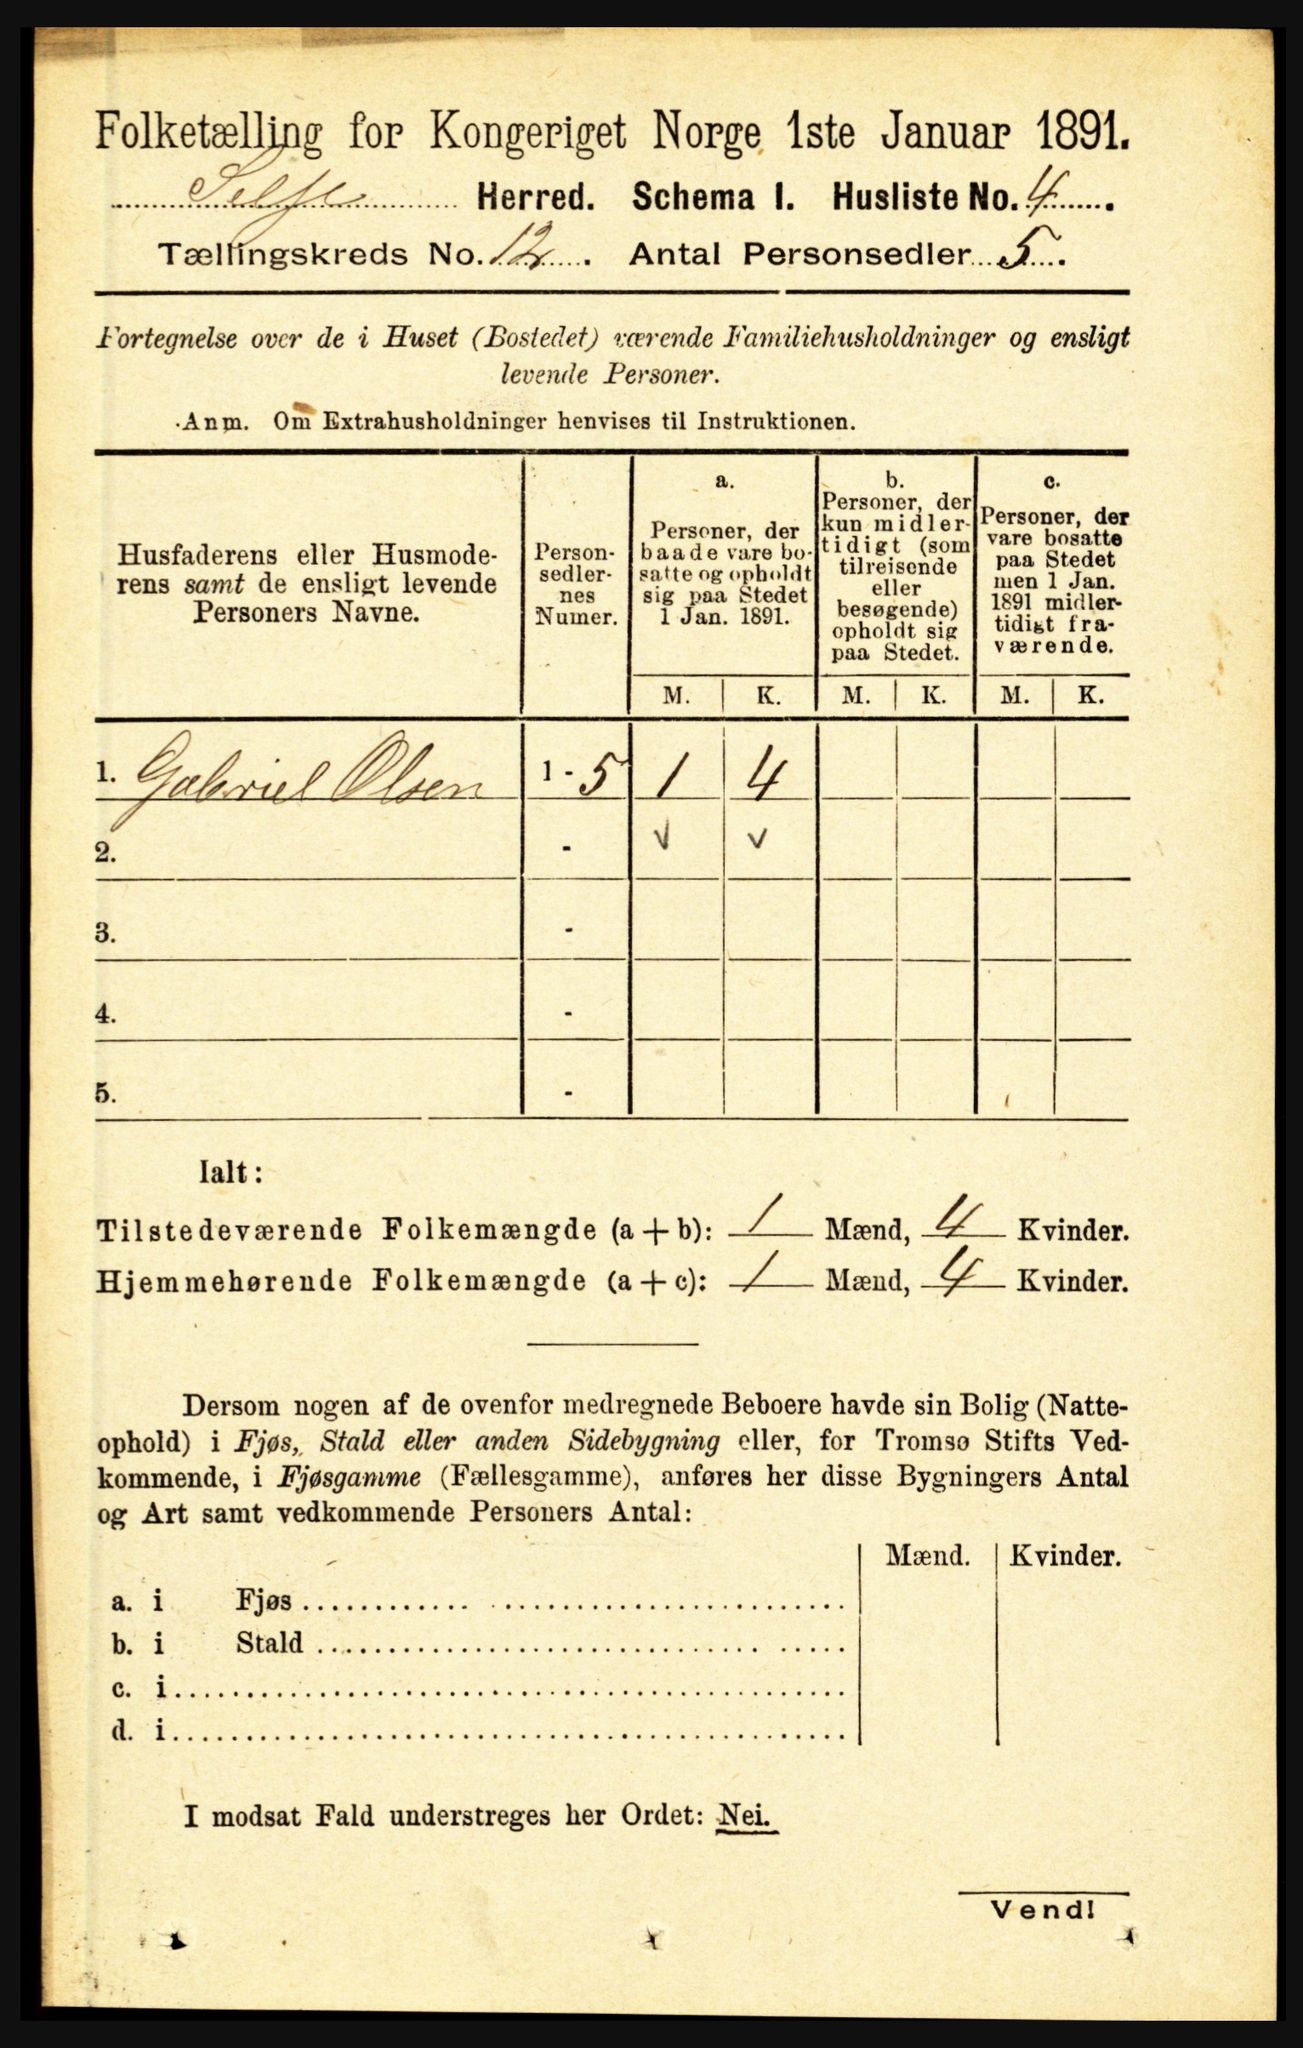 Folketælling for Kongeriget Norge 1ste Januar 1891.
Selje Herred. Schema I. Husliste No. 4.
Tællingskreds No. 12. Antal Personsedler 5.
Fortegnelse over de i Huset (Bostedet) værende Familiehusholdninger og ensligt
levende Personer.
Anm. Om Extrahusholdninger henvises til Instruktionen.
Husfaderens eller Husmode-
rens samt de ensligt levende
Personers Navne.
Person-
sedler-
nes
Numer.
a.
Personer, der
baade vare bo-
satte og opholdt
sig paa Stedet
1 Jan. 1891.
b.
Personer, der
kun midler-
tidigt (som
tilreisende
eller
besøgende)
opholdt sig
paa Stedet.
c.
Personer, der
vare bosatte
paa Stedet
men 1 Jan.
1891 midler-
tidigt fra-
værende.
M. K. M. K. M. K.
1. Gabriel Olsen 1 - 5 1 4
2. - v v
3. -
4. -
5. -
Ialt:
Tilstedeværende Folkemængde (a + b): 1 Mænd, 4 Kvinder.
Hjemmehørende Folkemængde (a + c): 1 Mænd, 4 Kvinder.
Dersom nogen af de ovenfor medregnede Beboere havde sin Bolig (Natte-
ophold) i Fjøs, Stald eller anden Sidebygning eller, for Tromsø Stifts Ved-
kommende, i Fjøsgamme (Fællesgamme), anføres her disse Bygningers Antal
og Art samt vedkommende Personers Antal:
Mænd. Kvinder.
a. i Fjøs
b. i Stald
c. i
d. i
I modsat Fald understreges her Ordet: Nei.
Vend!